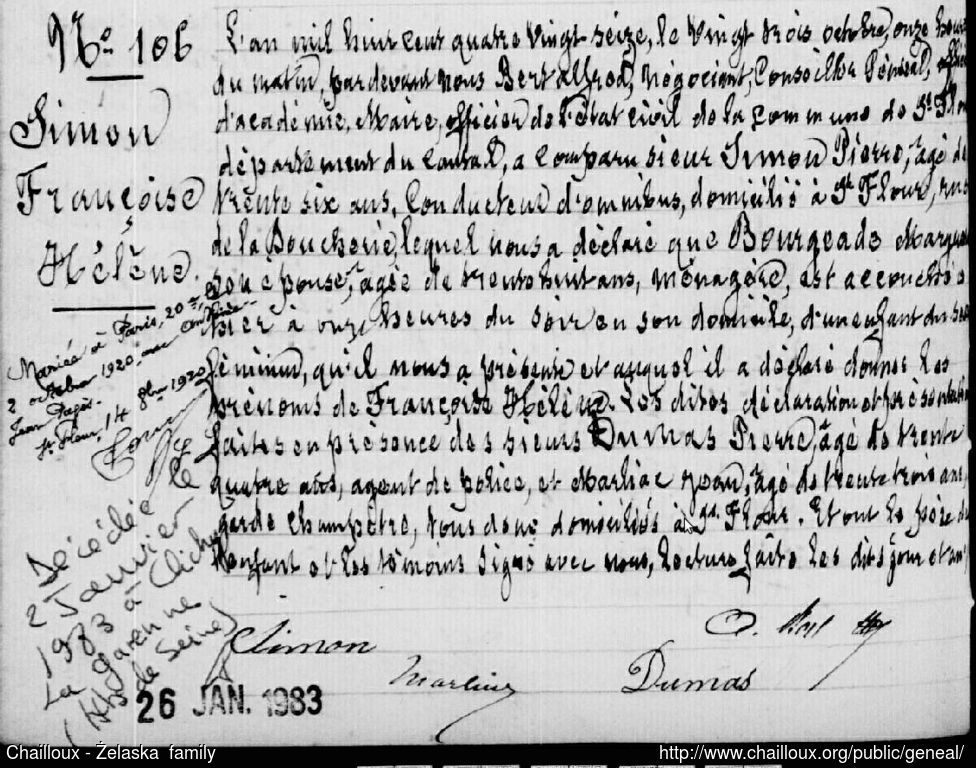 No 106
Simon
Françoise
Hélène.
Mariée à Paris, 20e,
2 octobre 1920
Jean Pagès.
St Flour, 14 8bre 1920
Décédée le
2 Janvier
1983 à Clichy
La Garenne
(Hts de Seine)
26 JAN. 1983
L'an mil huit cent quatre vingt seize, le vingt trois octobre, onze heures
du matin, par devant nous Bert Alfred, négociant, Conseiller Général, officier
d'académie, Maire, officier de l'état civil de la commune de St Flour
département du Cantal, a comparu sieur Simon Pierre, âgé de
trente six ans, Conducteur d'omnibus, domicilié à St Flour, rue
de la Boucherie, lequel nous a déclaré que Bourgeade Marguerite
son épouse, âgée de trente huit ans, ménagère, est accouchée
hier à onze heures du soir en son domicile, d'un enfant du sexe
féminin, qu'il nous a présenté et auquel il a déclaré donner les
prénoms de Françoise Hélène. Les dites déclaration et présentation
faites en présence des sieurs Dumas Pierre, âgé de trente
quatre ans, agent de police, et Marliac Jean, âgé de trente trois ans,
garde champêtre, tous deux domiciliés à St Flour. Et ont le père de
l'enfant et les témoins signé avec nous, lecture faite les dits jour et an
Simon
Marliac
Dumas
Chailloux - Żelaska family
http://www.chailloux.org/public/geneal/